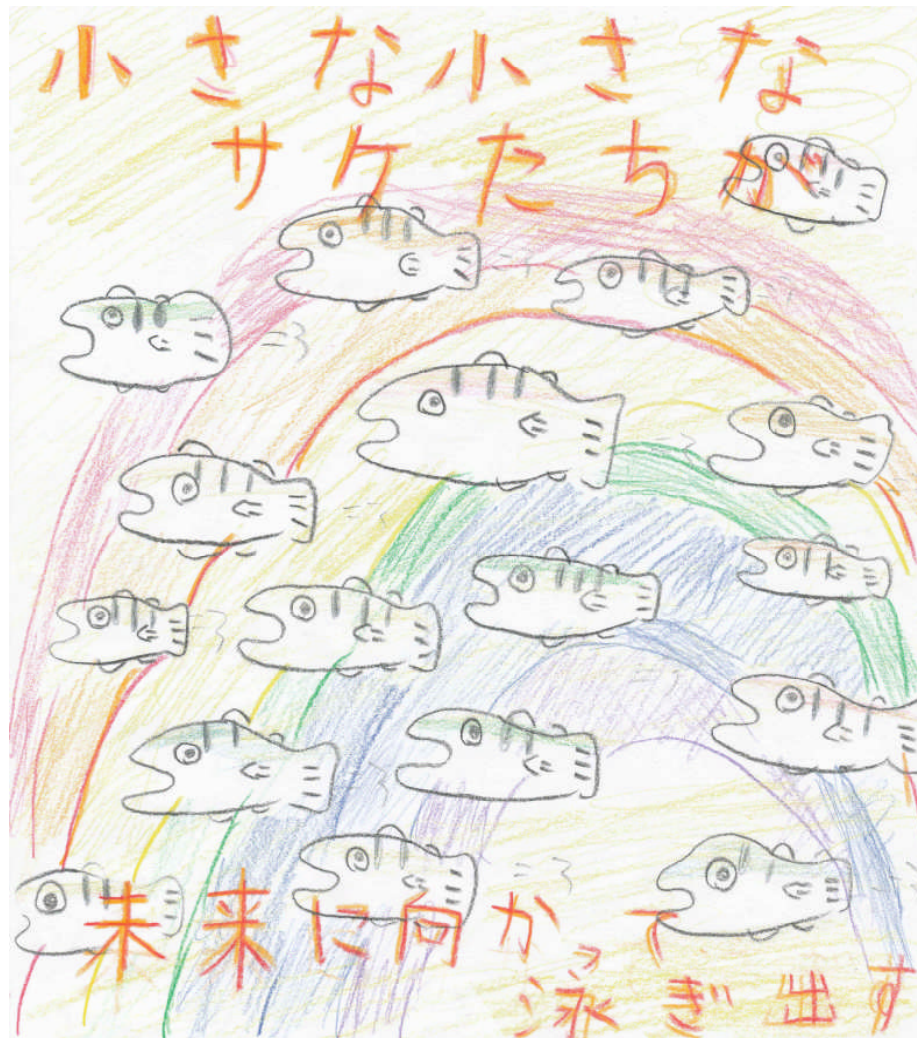 小さな小さな
サケたちが
未来に向かって
泳ぎ出す